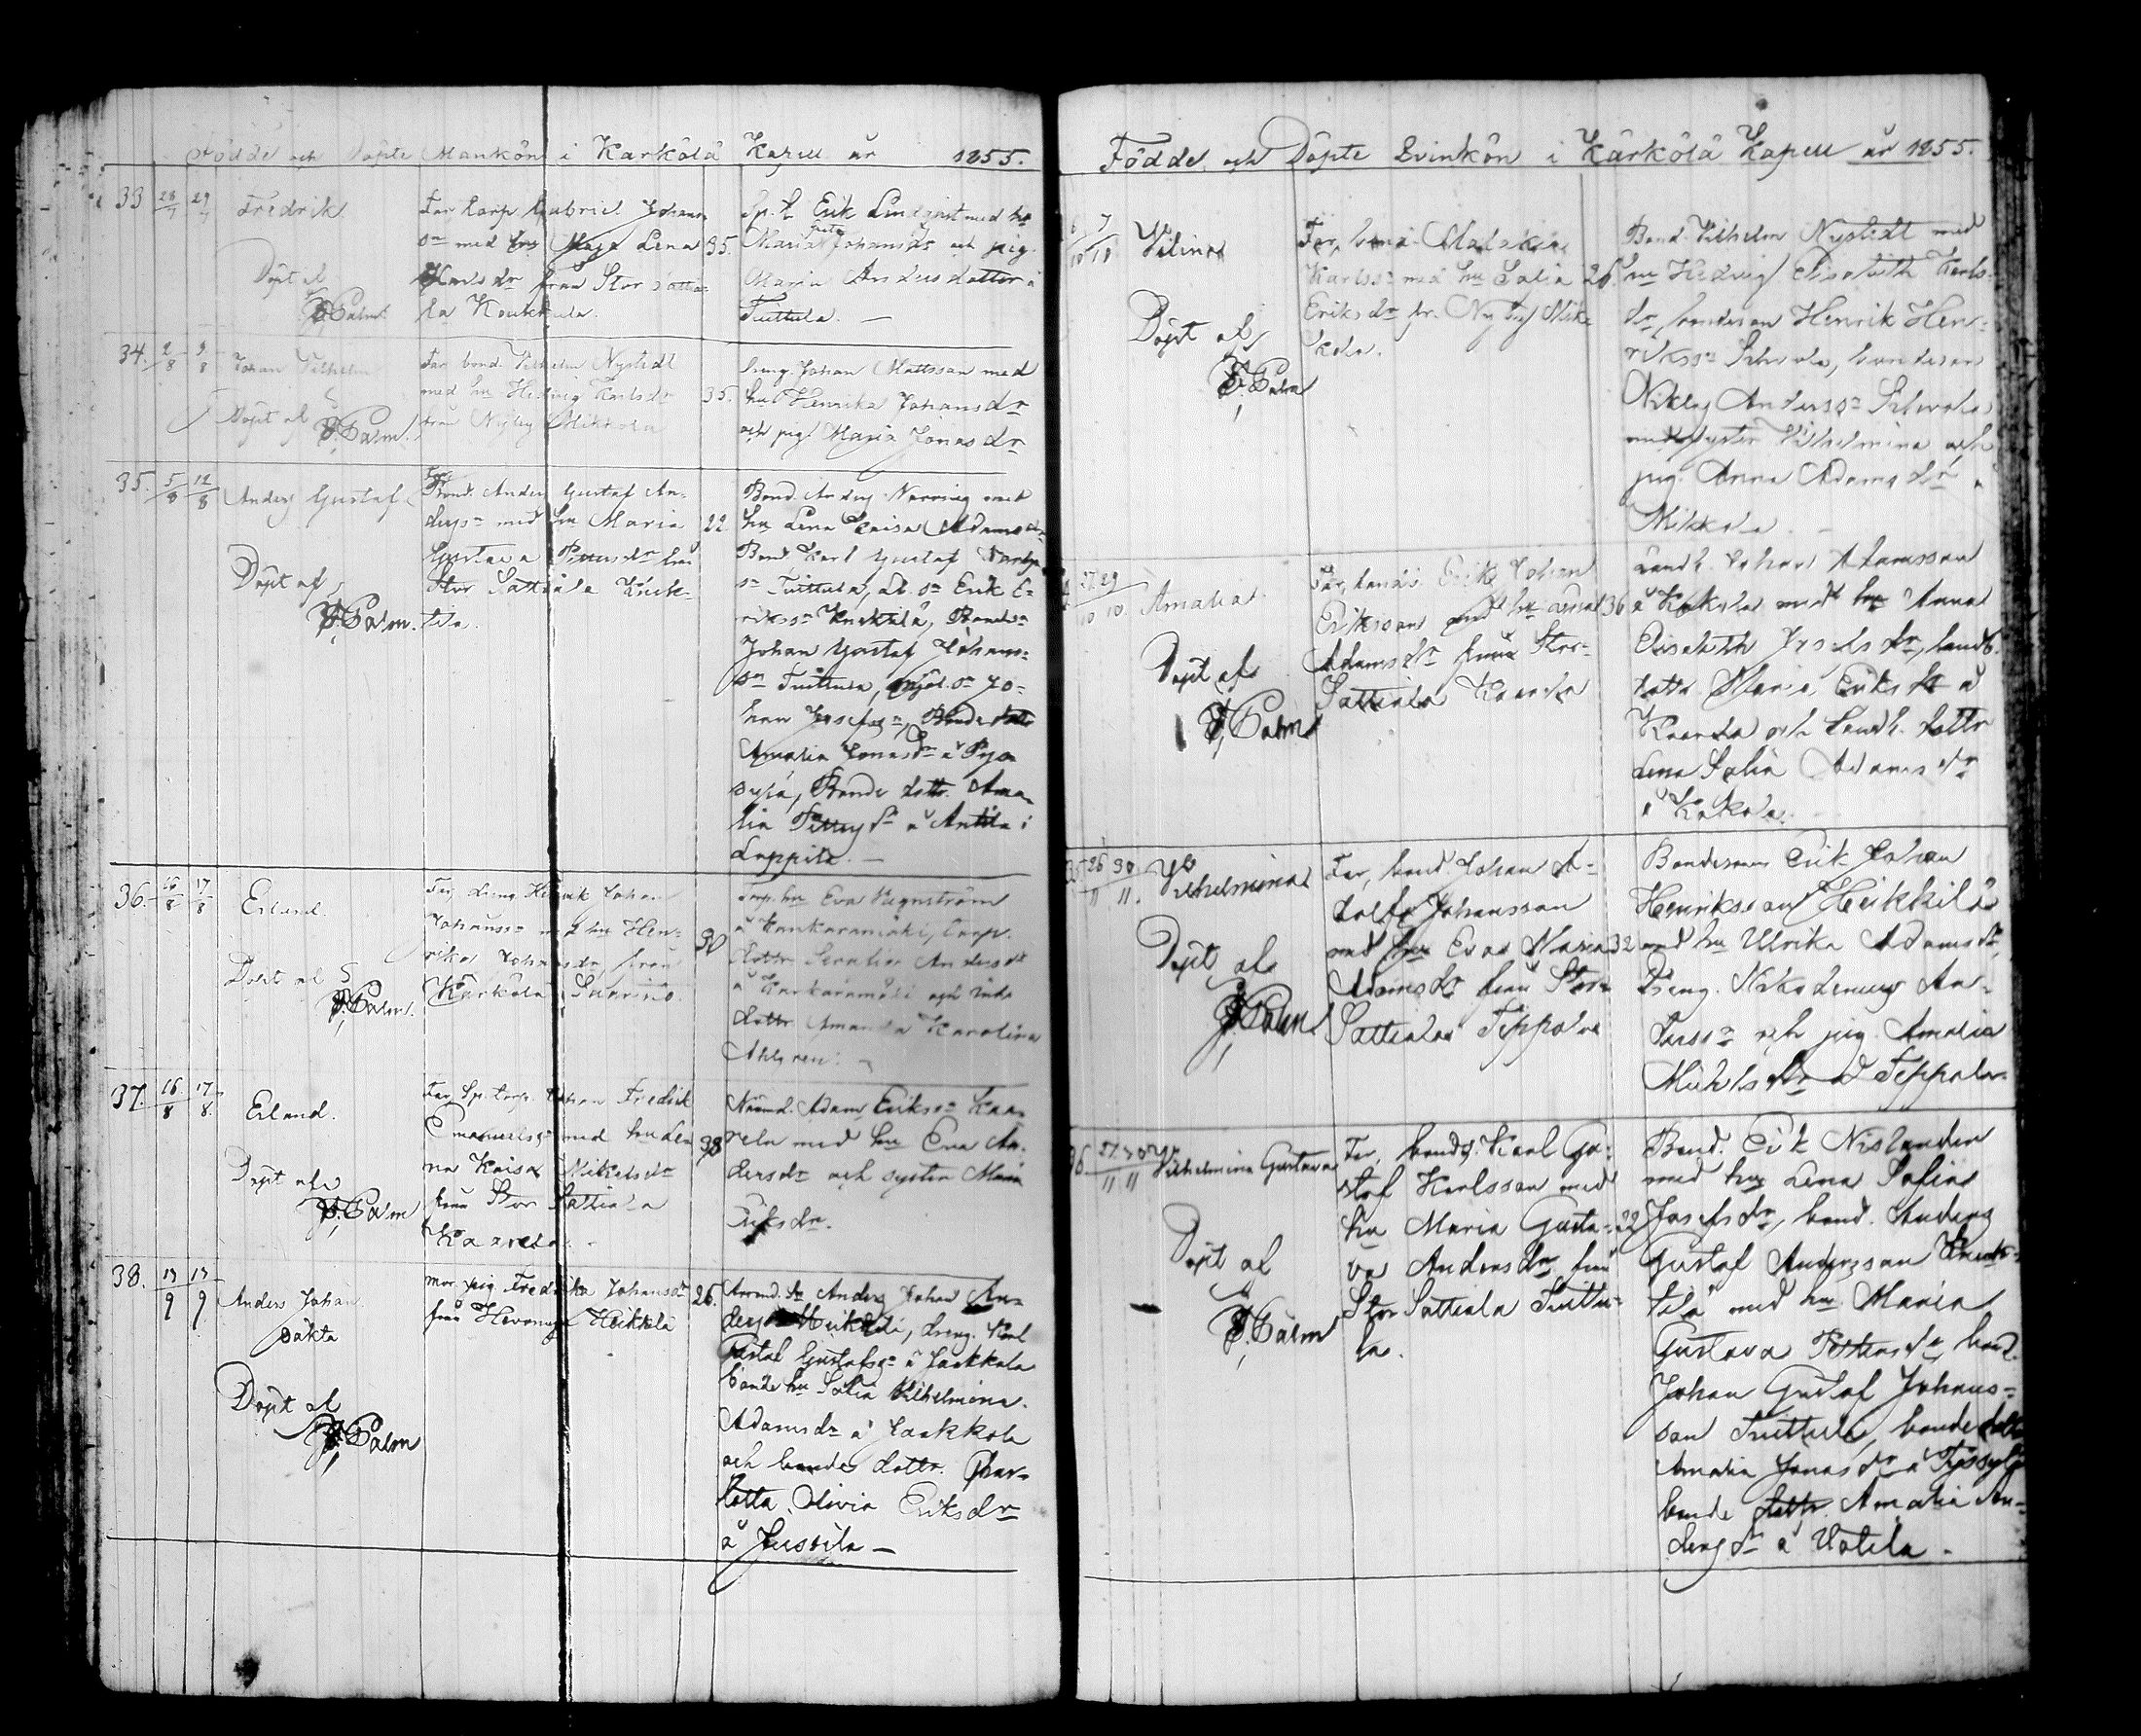 Födde och Döpte Mankön i Kärkölä Kapell år 1855.
33 28/7 29/7 Fredrik
Döpt af
J. Palm.
Far Torp. Gabriel Johans
sn med hu Maja Lena 35.
Karlsdr från Stor Sattia-
la Koukkula.
Sp. t. Erik Lindqvist med hu
Maria Johansdr och pig.
Maria Andersdotter i
Tuittula. —
34. 2/8 3/8 Johan Vilhelm
Döpt af
J. Palm.
Far bond. Vilhelm Nystedt
med hu Hedvig Karlsdr 35.
från Nyby Mikkola
Dreng. Johan Mattsson med
hu Henrika Johansdr
och pig. Maria Jonasdr
35. 5/8 12/8 Anders Gustaf
Döpt af
J. Palm.
Far
Bond. Anders Gustaf An-
derssn med hu Maria 22.
Gustava från
Stor Sattiala Knuk-
tila.
Bond. Anders med
hu Lena Caisa Adamsdr
Bond. Karl Gustaf
sn Tuittula, sn Erik E-
rikssn Knuktila, Bondesn
Johan Gustaf Johans-
sn Tuittula, mjöl. sn Jo-
han Josefssn, Bondedottr
Amalia Jonasdr å
Bonde dottr. Ama-
lia dr å Anttila i
Lappila. —
36. 8 17/8 Erland.
Döpt af
J. Palm.
Far, dreng Henrik Johan
Johanssn med hu Hen- 30
rika Johansdr från
Kärkölä Suurino.
Torp. hu Eva
å Torp.
dottr Serafia Andersdr
å och Inh.
dottr Amanda Karolina
Ahlgren. —
37. 16/8 17/8. Erland.
Döpt af
J. Palm
Far Sp. torp. Johan Fredrik
Emanuelss med hu Le- 38
na Kaisa Mikelsdr
från Stor Sattiala
Kaarela.
Nämd. Adam Erikssn Kaa-
rela med hu Eva An-
dersdr och syster Maria
Eriksdr.
38. 13/9 13/9 Anders Johan
oäkta
Döpt af
J. Palm
Mor, pig. Fredrika Johansdr 26.
från Hevonoja Heikkilä
sn Anders Johan An-
derss Heikkilä, dreng. Karl
Gustaf Gustafssn å Jaakkola
bonde hu Sofia Vilhelmina
Adamsdr å Jaakkola
och bonde dottr. Char-
lotta Olivia Eriksdr
å Jussila —
Födde och Döpte Qvinkön i Kärkölä Kapell år 1855.
6/10 7/10 Vilina
Döpt af
J. Palm
Far, bond.
Karlssn med hu Sofia 26.
Eriksdr fr. Nyby Mik-
kola.
Bond. Vilhelm Nystedt med
hu Hedvig Elisabeth Karls-
dr, bondeson Henrik Hen-
rikssn bondeson
Niklas Anderssn
med syster Vilhelmina och
pig. Anna Adamsdr å
Mikkola. —
27/10 29/10 Amalia.
Döpt af
J. Palm
Far, Erik Johan
Eriksson med hu Lovisa 36
Adamsdr från Stor-
Sattiala Kaarela
Landb. Johan Adamsson
å Kokkola med hu Anna
Elisabeth dr, landb.
dottr. Maria Eriksdr å
Kaarela och landb. dottr
Lena Sofia Adamsdr
å Kokkola.
35 26/11 30/11. Vilhelmina
Döpt af
J. Palm
Far, bond. Johan A-
dolf Johansson
med hu Eva Maria 32
Adamsdr från Stor-
Sattiala Teppola
Bondeson Erik Johan
Henriksson Heikkilä
med hu Ulrika Adamsdr,
Dreng. Nikodemus An-
derssn och pig. Amalia
Mickelsdr å Teppola.
36 27/11 30/11 Vilhelmina Gustava
Döpt af
J. Palm
Far, bondes. Karl Gu-
staf Karlsson med
hu Maria Gusta- 22
va Andersdr från
Stor Sattiala Tuittu-
la.
Bond. Erik Nislander
med hu Lena Sofia
Josefsdr, bond. Anders
Gustaf Andersson Knuk-
tila med hu Maria
Gustava Pettersdr, bond.
Johan Gustaf Johans-
son Tuittula, bonde dottr
Amalia Jonasdr å
bonde dottr. Amalia An-
dersdr å Uotila —